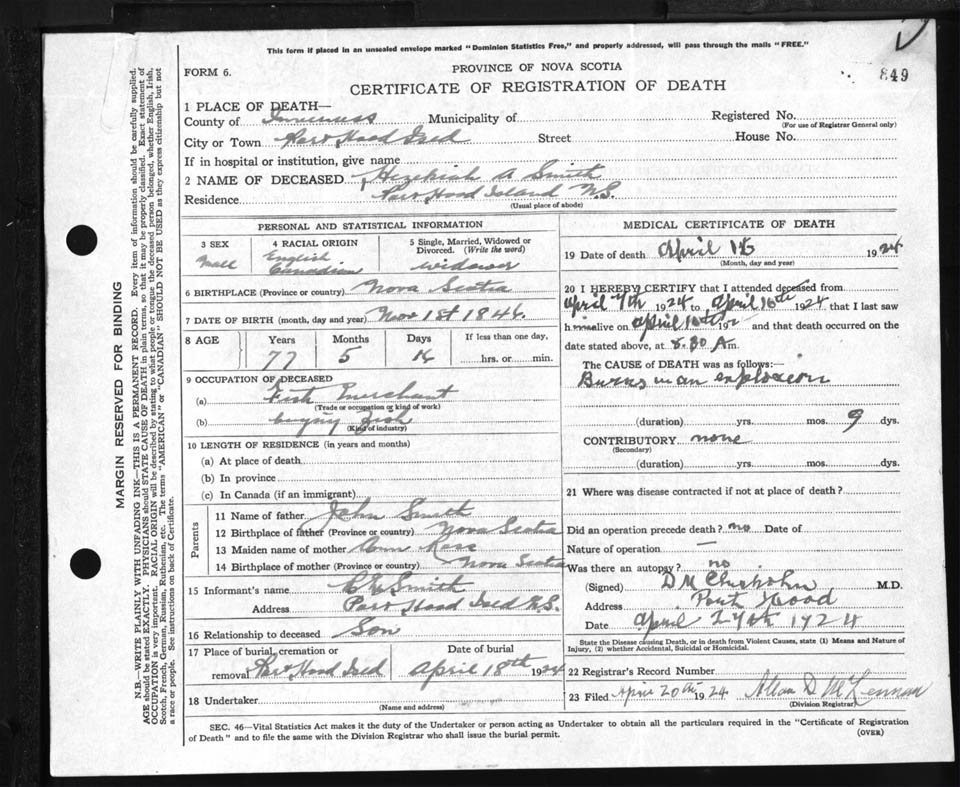 This form if placed in an unsealed envelope marked "Dominion Statistics Free," and properly addressed, will pass through the mails "FREE."
FORM 6.
PROVINCE OF NOVA SCOTIA
849
CERTIFICATE OF REGISTRATION OF DEATH
1 PLACE OF DEATH—
County of Inverness Municipality of Registered No.
(For use of Registrar General only)
City or Town Port Hood Isld Street House No.
If in hospital or institution, give name
2 NAME OF DECEASED Hezekiah A Smith
Residence Port Hood Island N.S.
(Usual place of abode)
PERSONAL AND STATISTICAL INFORMATION
3 SEX 4 RACIAL ORIGIN 5 Single, Married, Widowed or Divorced. (Write the word)
Male English Canadian widower
6 BIRTHPLACE (Province or country) Nova Scotia
7 DATE OF BIRTH (month, day and year) Nov 1st 1846.
8 AGE Years Months Days If less than one day,
77 5 16 hrs. or min.
9 OCCUPATION OF DECEASED
(a) Fish Merchant
(Trade or occupation or kind of work)
(b) buying fish
(Kind of industry)
10 LENGTH OF RESIDENCE (in years and months)
(a) At place of death
(b) In province
(c) In Canada (if an immigrant)
Parents
11 Name of father John Smith
12 Birthplace of father (Province or country) Nova Scotia
13 Maiden name of mother Ann Ross
14 Birthplace of mother (Province or country) Nova Scotia
15 Informant's name Smith
Address Port Hood Isld N.S.
16 Relationship to deceased Son
17 Place of burial, cremation or removal Date of burial
Port Hood Isld April 18th 1924
18 Undertaker
(Name and address)
MEDICAL CERTIFICATE OF DEATH
19 Date of death April 16 1924
(Month, day and year)
20 I HEREBY CERTIFY that I attended deceased from
April 7th 1924 to April 16th 1924 that I last saw
h im alive on April 16th 192 and that death occurred on
date stated above, at 8.30 A m.
The CAUSE of DEATH was as follows:—
Burns in an explosion
(duration) yrs. mos. 9 dys.
CONTRIBUTORY none
(Secondary)
(duration) yrs. mos. dys.
21 Where was disease contracted if not at place of death?
Did an operation precede death? no Date of
Nature of operation —
Was there an autopsy? no
(Signed) D M Chisholm M.D.
Address Port Hood
Date April 27th 1924
State the Disease causing Death, or in death from Violent Causes, state (1) Means and Nature of Injury, (2) whether Accidental, Suicidal or Homicidal.
22 Registrar's Record Number
23 Filed April 20th 1924 Allan D McLennan
(Division Registrar)
SEC. 46—Vital Statistics Act makes it the duty of the Undertaker or person acting as Undertaker to obtain all the particulars required in the "Certificate of Registration
of Death" and to file the same with the Division Registrar who shall issue the burial permit.
(OVER)
MARGIN RESERVED FOR BINDING
N.B.—WRITE PLAINLY WITH UNFADING INK—THIS IS A PERMANENT RECORD. Every item of information should be carefully supplied.
AGE should be stated EXACTLY. PHYSICIANS should STATE CAUSE OF DEATH in plain terms, so that it may be properly classified. Exact statement of
OCCUPATION is very important. RACIAL ORIGIN will be described by stating to what people or tongue the deceased person belonged, whether English, Irish,
Scotch, French, German, Russian, Ruthenian, etc. The terms "AMERICAN" or "CANADIAN" SHOULD NOT BE USED as they express citizenship but not
a race or people. See instructions on back of Certificate.